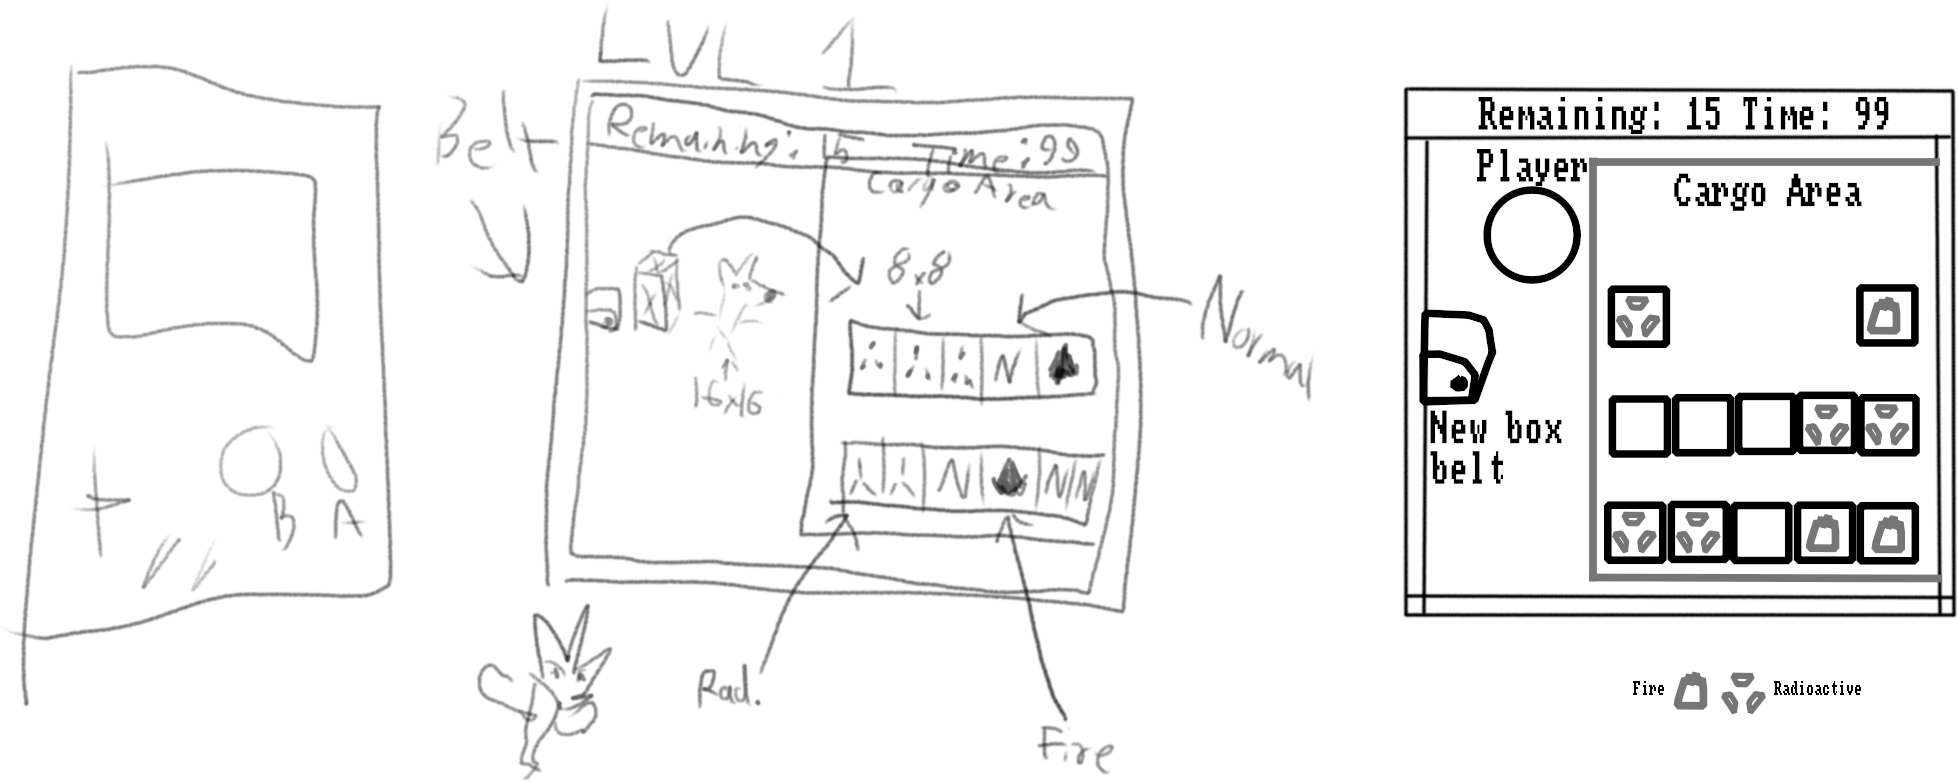 B A
LVL 1
Belt
Remaining: 15 Time: 99
Cargo Area
8x8
16x16
Normal
N
N N N
Rad.
Fire
Remaining: 15 Time: 99
Player
Cargo Area
New box
belt
Fire
Radioactive